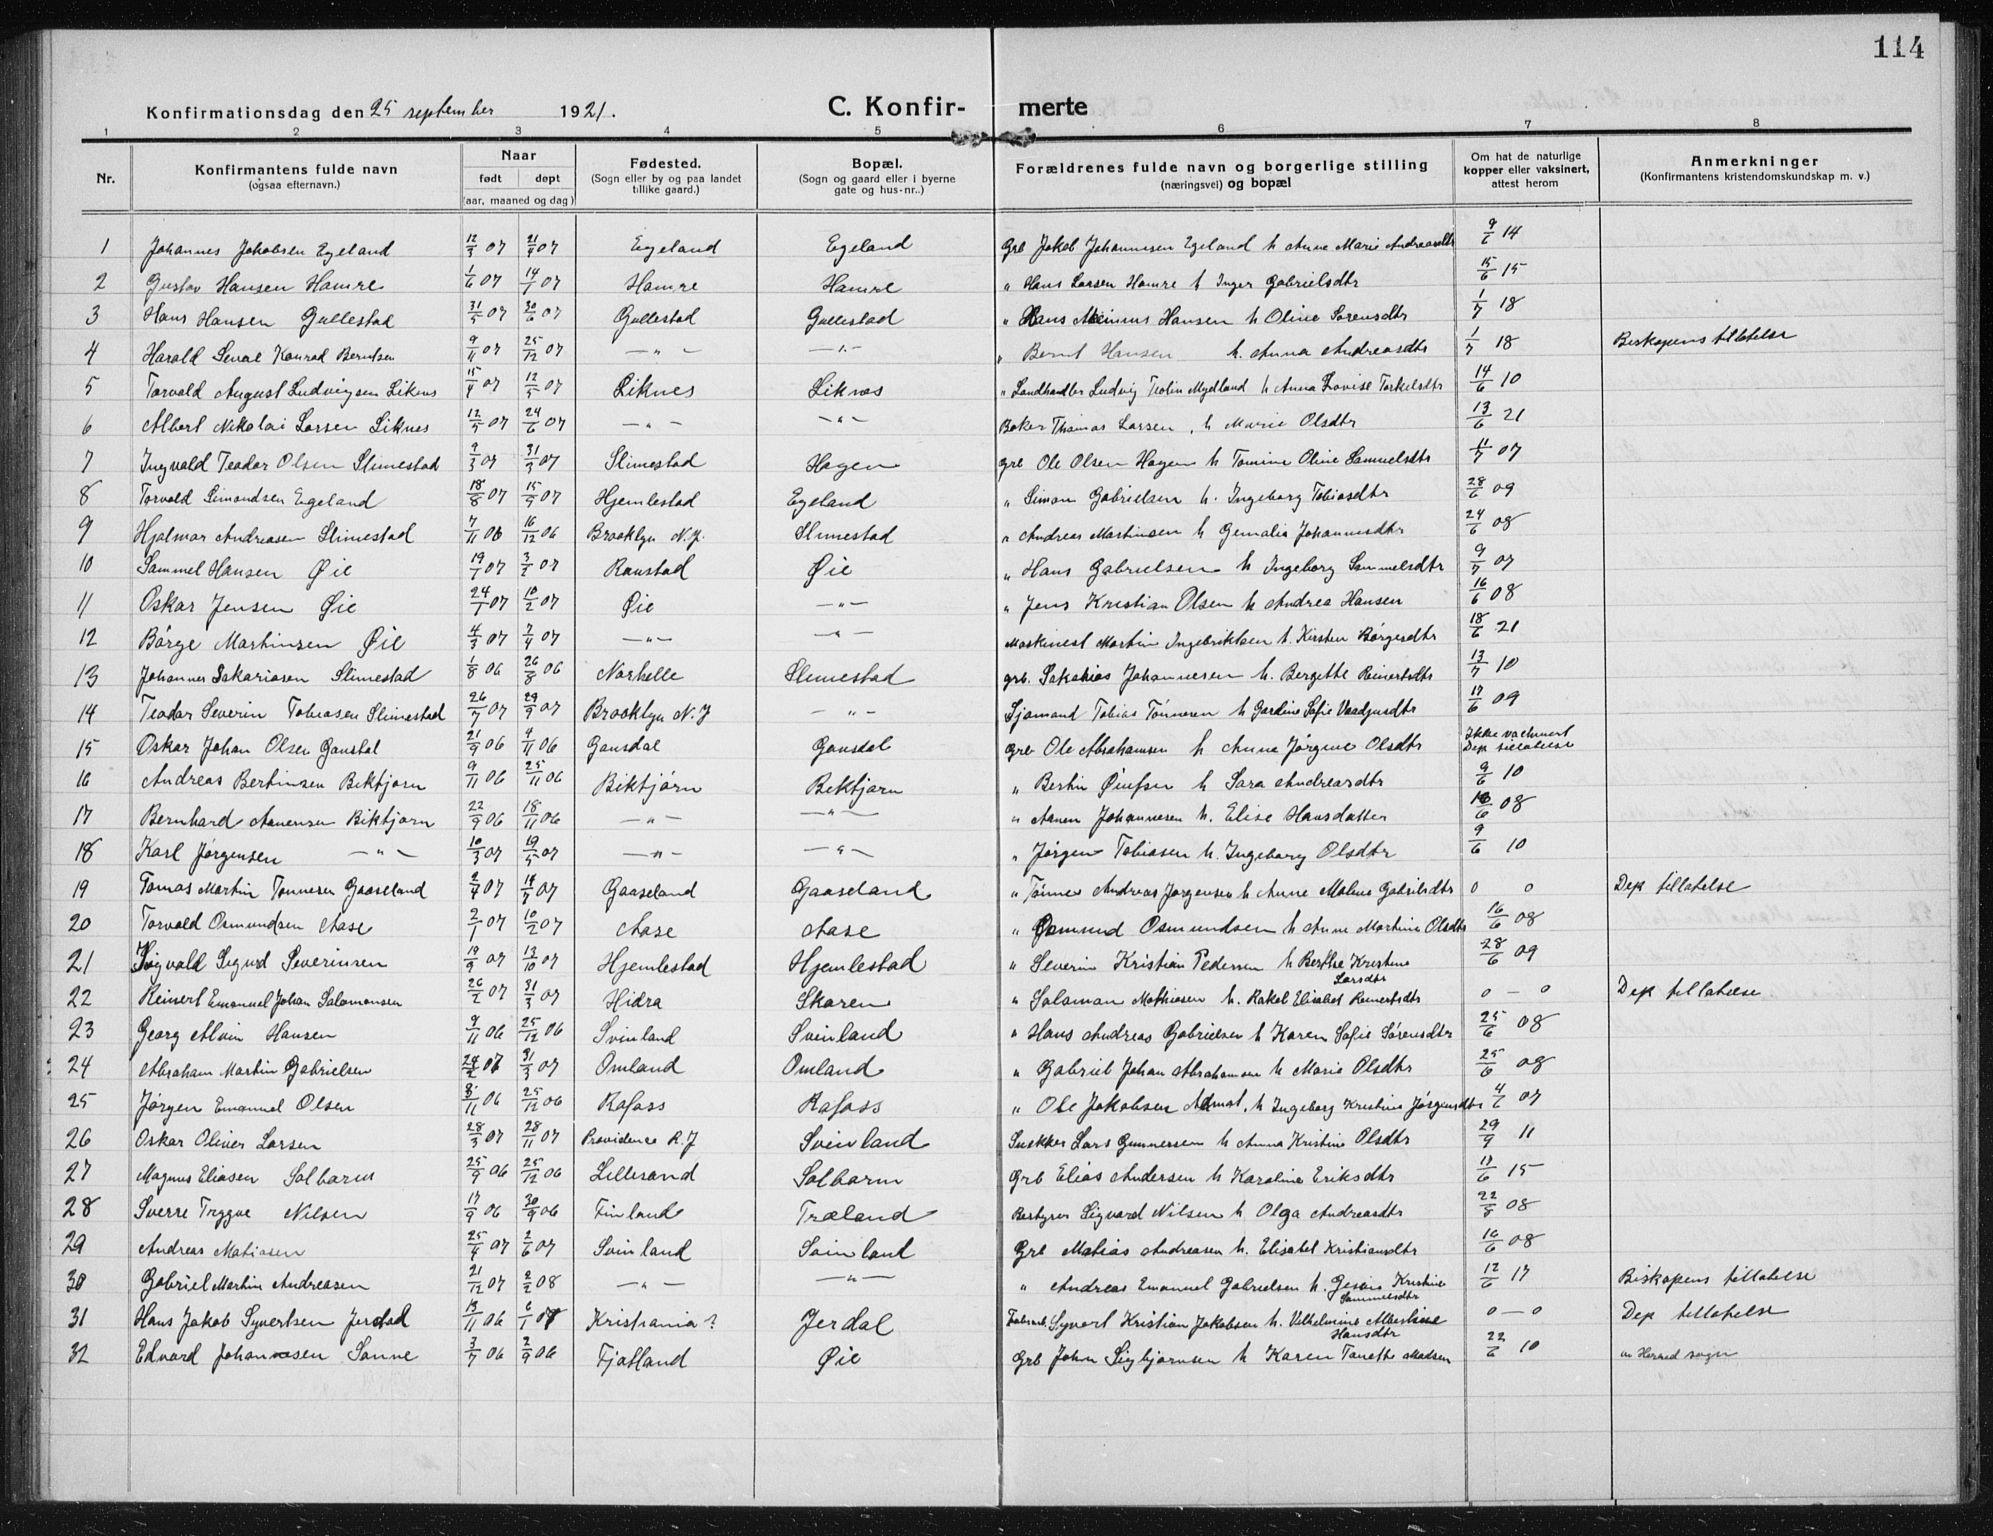 114
Konfirmationsdag den 25 september 1921.
C. Konfir- merte
1 2 3 4 5 6 7 8
Nr. Konfirmantens fulde navn (ogsaa efternavn.) Naar født døpt (aar, maaned og dag) Fødested. (Sogn eller by og paa landet tillike gaard.) Bopæl. (Sogn og gaard eller i byerne gate og hus-nr..) Forældrenes fulde navn og borgerlige stilling (næringsvei) og bopæl Om hat de naturlige kopper eller vaksinert, attest herom Anmerkninger (Konfirmantens kristendomskundskap m. v.)
1 Johannes Jakobsen Egeland 12/3 07 21/4 07 Egeland Egeland Grb Jakob Johannesen Egeland h Anne Marie Andreasdtr 9/6 14
2 Gustav Hansen Hamre 1/6 07 14/7 07 Hamre Hamre " Hans Larsen Hamre h Inger Gabrielsdtr 15/6 15
3 Hans Hansen Gullestad 31/5 07 30/6 07 Gullestad Gullestad " Hans Hansen h Oline Sørensdtr 1/7 18
4 Harald Konrad Berntsen 9/11 07 25/12 07 — " — — " — " Bernt Hansen h. Anna Andreasdtr 1/7 18 Biskopens tillatelse
5 Torvald August Ludvigsen Liknes 15/4 07 12/5 07 Liknes Liknes " Landhandler Ludvig Teolin Mydland h Anna Lovise Torkelsdtr 14/6 10
6 Albert Nikolai Larsen Liknes 12/5 07 24/6 07 — " — — " — Baker Thomas Larsen, h Marie Olsdtr 13/6 21
7 Ingvald Teodor Olsen Slimestad 9/3 07 31/3 07 Slimestad Hagen grb Ole Olsen Hagen h Tomine Oline Samuelsdtr 11/7 07
8 Torvald Simondsen Egeland 18/8 07 15/9 07 Hjemlestad Egeland " Simon Gabrielsen h. Ingeborg Tobiasdtr 28/6 09
9 Hjalmar Andreasen Slimestad 7/11 06 16/12 06 Brooklyn N.J. Slimestad " Andreas Martinsen h Johannesdtr 24/6 08
10 Sammel Hansen Øie 19/1 07 3/2 07 Raustad Øie " Hans Gabrielsen h Ingeborg Sammelsdtr 9/7 07
11 Oskar Jensen Øie 24/1 07 10/2 07 Øie — " — " Jens Kristian Olsen h Andrea Hansen 16/6 08
12 Børge Martinsen Øie 4/3 07 7/4 07 — " — — " — Maskinest Martin Ingebriktsen h. Kirsten Børgesdtr 18/6 21
13 Johannes Sakariasen Slimestad 1/8 06 26/8 06 Narhelle Slimestad grb. Sakarias Johannesen h. Bergitte Reinertsdtr 13/7 10
14 Teodor Severin Tobiasen Slimestad 26/7 07 29/9 07 Brooklyn N.J — " — Sjømand Tobias Tønnesen h Gardine Sofie 17/6 09
15 Oskar Johan Olsen Gausdal 21/9 06 4/11 06 Gausdal Gausdal Grb Ole Abrahamsen h Anne Jørgine Olsdtr Ikke vachinert Dep tillatelse
16 Andreas Bertinsen Biktjørn 9/11 06 25/11 06 Biktjørn Biktjørn " Bertin h Sara Andreasdtr 9/6 10
17 Bernhard Aanensen Biktjørn 22/9 06 18/11 06 — " — — " — " Aanen Johannesen h. Elise Hansdatter 08
18 Karl Jørgensen — " — 10/3 07 19/5 07 — " — — " — " Jørgen Tobiasen h. Ingeborg Olsdtr 9/6 10
19 Tomas Martin Tønnesen Gaaseland 2/4 07 14/7 07 Gaaseland Gaaseland " Tønnes Andreas Jørgensen h Anne Malene Gabrielsdtr 0 0 Dep tillatelse
20 Torvald Osmundsen Aase 2/1 07 10/2 07 Aase Aase " Osmund Osmundsen h Anne Martine Olsdtr 16/6 08
21 Sigvald Sigurd Severinsen 19/9 07 13/10 07 Hjemlestad Hjemlestad " Severin Kristian Pedersen h Berthe Kristine Larsdtr 28/6 09
22 Reinert Emanuel Johan Salomonsen 26/2 07 31/3 07 Hidra Skaren " Salaman Mathiasen h. Rakel Elisabet Reinertsdtr 0 — 0 Dep tillatelse
23 Georg Alvin Hansen 9/11 06 25/12 06 Svinland Svinland " Hans Andreas Gabrielsen h Karen Sofie Sørensdtr 25/6 08
24 Abraham Martin Gabrielsen 24/2 07 31/3 07 Omland Omland " Gabriel Johan Abrahamsen h Marie Olsdtr 25/6 08
25 Jørgen Emanuel Olsen 8/11 06 25/12 06 Rafoss Rafoss " Ole Jakobsen h Ingeborg Kristine Jørgensdtr 4/6 07
26 Oskar Oliver Larsen 28/3 07 28/11 07 Providence R.J Svinland Snekker Lars Gunnersen h Anna Kristine Olsdtr 29/9 11
27 Magnus Eliasen Solbarm 25/9 06 25/12 06 Lillesand Solbarm Grb Elias Andersen h Karoline Eriksdtr 17/6 15
28 Sverre Trygve Nilsen 17/9 06 30/9 06 Finland Træland Bestyrer Sigvard Nilsen h Olga Andreasdtr 22/8 08
29 Andreas Matiasen 25/4 07 2/6 07 Svinland Svinland Grb Matias Andreasen h. Elisabet Kristiansdtr 16/6 08
30 Gabriel Martin Andreasen 21/12 07 2/2 08 — " — — " — " Andreas Emanuel Gabrielsen h. Kristine Sammelsdtr 12/6 17 Biskopens tillatelse
31 Hans Jakob Syvertsen Jerdal 13/11 06 6/1 07 Kristiania? Jerdal Syvert Kristian Jakobsen h. Vilhelmine Albertine Hansdtr 0 — 0 Dep tillatelse
32 Edvard Johannesen Sanne 3/7 06 2/9 06 Fjotland Øie Grb Johan Sigbjørnsen h Karen Tanette Madsen 22/6 10 sogn